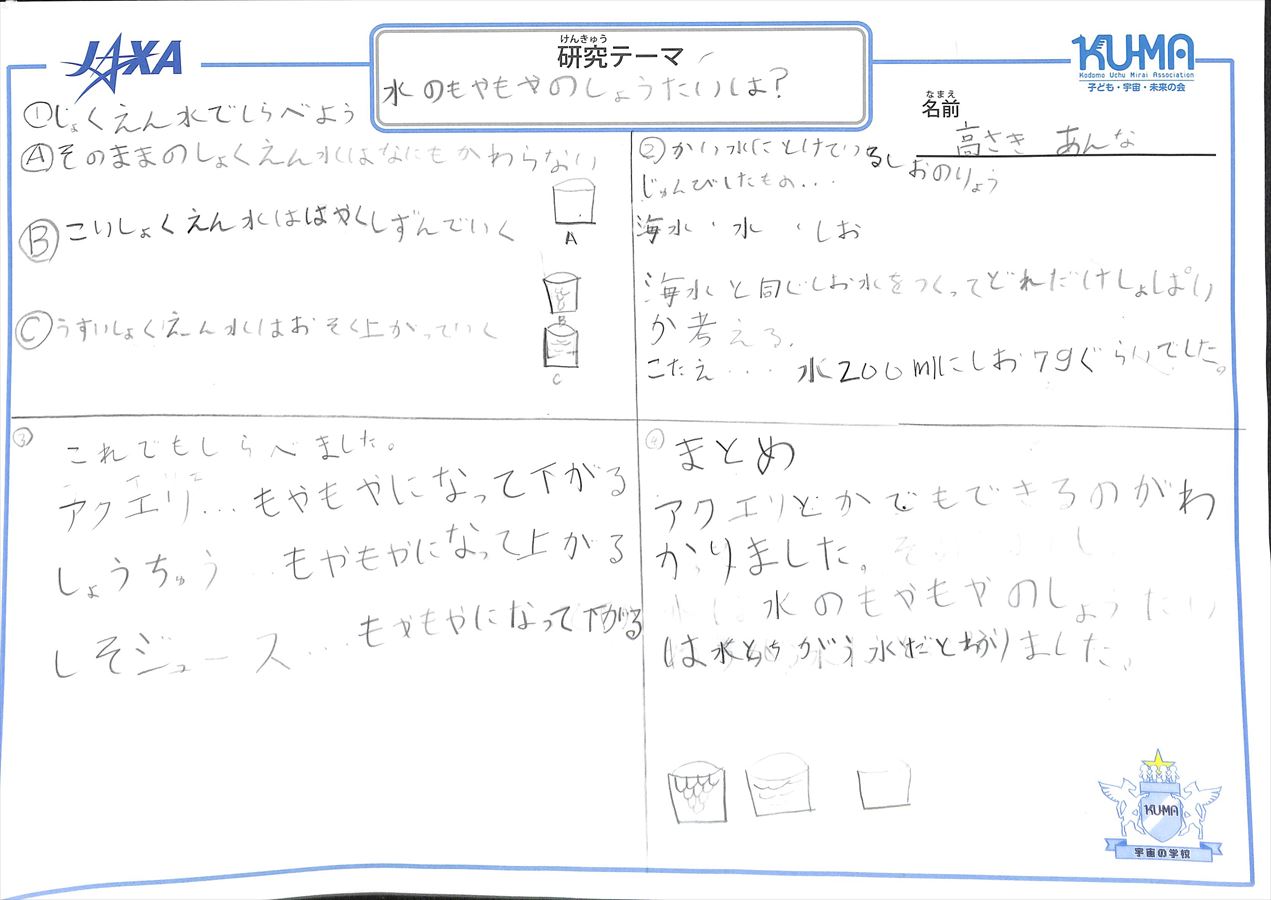 JAXA
けんきゅう
研究テーマ
水のもやもやのしょうたいは?
KU-MA
Kodomo Uchu Mirai Association
子ども・宇宙・未来の会
なまえ
名前
高さき あんな
①じょくえん水でしらべよう
Ⓐそのままのしょくえん水はなにもかわらない
A
Ⓑこいしょくえん水ははやくしずんでいく
B
Ⓒうすいしょくえん水はおそく上がっていく
C
②かい水にとけているしおのりょう
じゅんびしたもの...
海水・水・しお
海水と同じしお水をつくってどれだけしょぱい
か考える.
こたえ... 水200mlにしお7gぐらいでした。
③
これでもしらべました。
アクエリ...もやもやになって下がる
しょうちゅう...もやもやになって上がる
しそジュース...もやもやになって下がる
④まとめ
アクエリとかでもできるのがわ
かりました。
水のもやもやのしょうたい
は水とちがう水だとわかりました、
KUMA
宇宙の学校